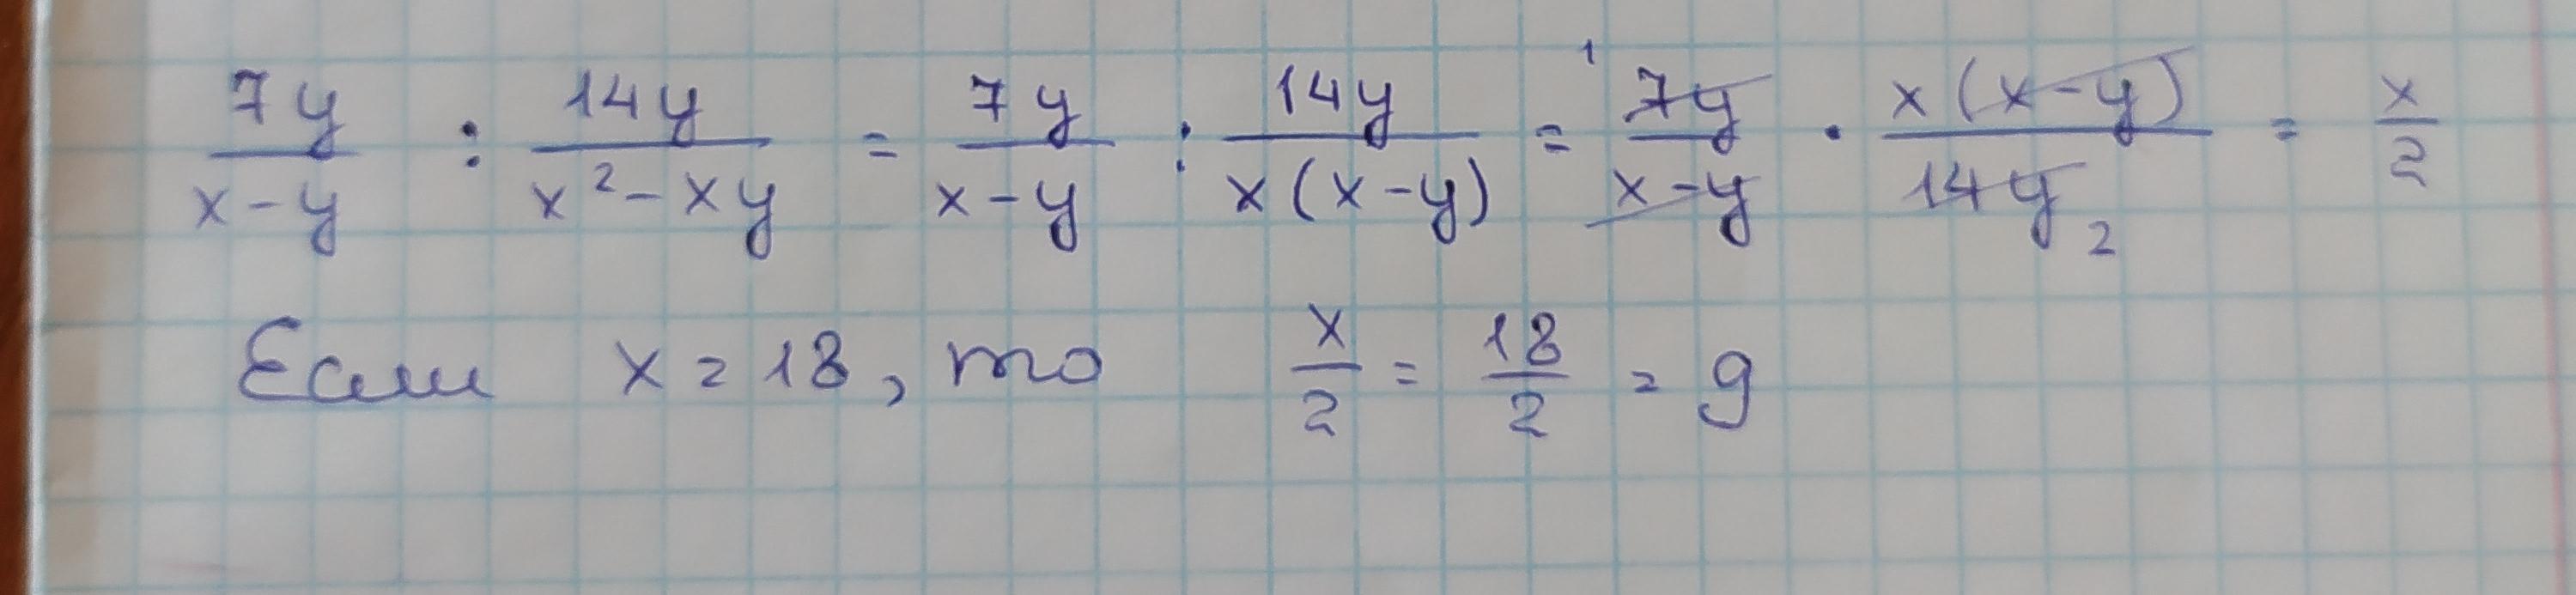 7y/(x-y) : 14y/(x²-xy) = 7y/(x-y) : 14y/(x(x-y)) = ¹ 7y/(x-y) · x(x-y)/(14y ₂) = x/2
Если x = 18, то x/2 = 18/2 = 9